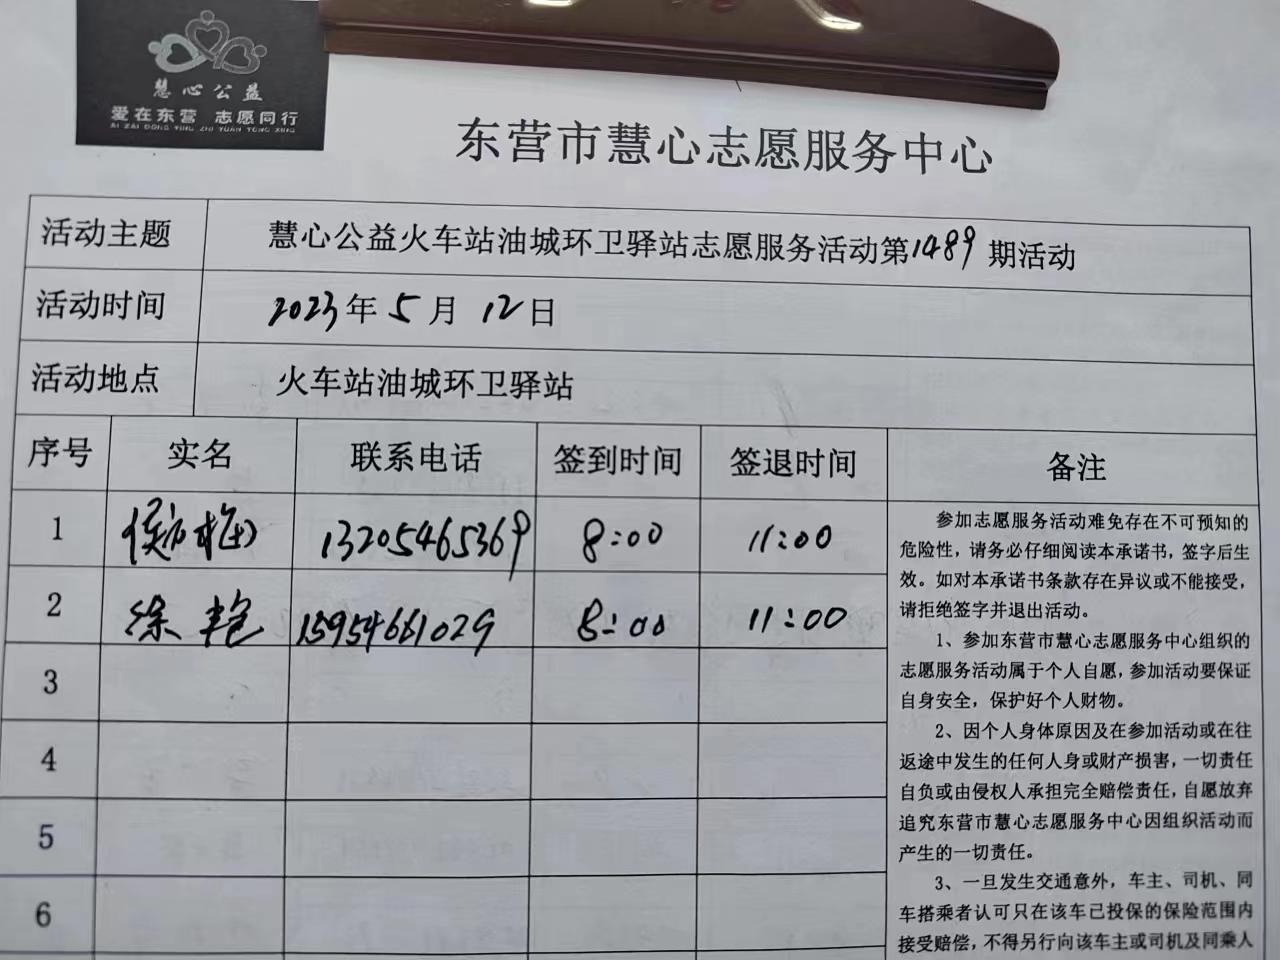 慧心公益
爱在东营 志愿同行
AI ZAI DONG YING ZHI YUAN TONG XING
东营市慧心志愿服务中心
活动主题 慧心公益火车站油城环卫驿站志愿服务活动第1489期活动
活动时间 2023年5月12日
活动地点 火车站油城环卫驿站
序号 实名 联系电话 签到时间 签退时间 备注
1 13205465369 8:00 11:00
2 徐艳 15954661029 8:00 11:00
3
4
5
6
参加志愿服务活动难免存在不可预知的
危险性，请务必仔细阅读本承诺书，签字后生
效。如对本承诺书条款存在异议或不能接受，
请拒绝签字并退出活动。
1、参加东营市慧心志愿服务中心组织的
志愿服务活动属于个人自愿，参加活动要保证
自身安全，保护好个人财物。
2、因个人身体原因及在参加活动或在往
返途中发生的任何人身或财产损害，一切责任
自负或由侵权人承担完全赔偿责任，自愿放弃
追究东营市慧心志愿服务中心因组织活动而
产生的一切责任。
3、一旦发生交通意外，车主、司机、同
车搭乘者认可只在该车已投保的保险范围内
接受赔偿，不得另行向该车主或司机及同乘人